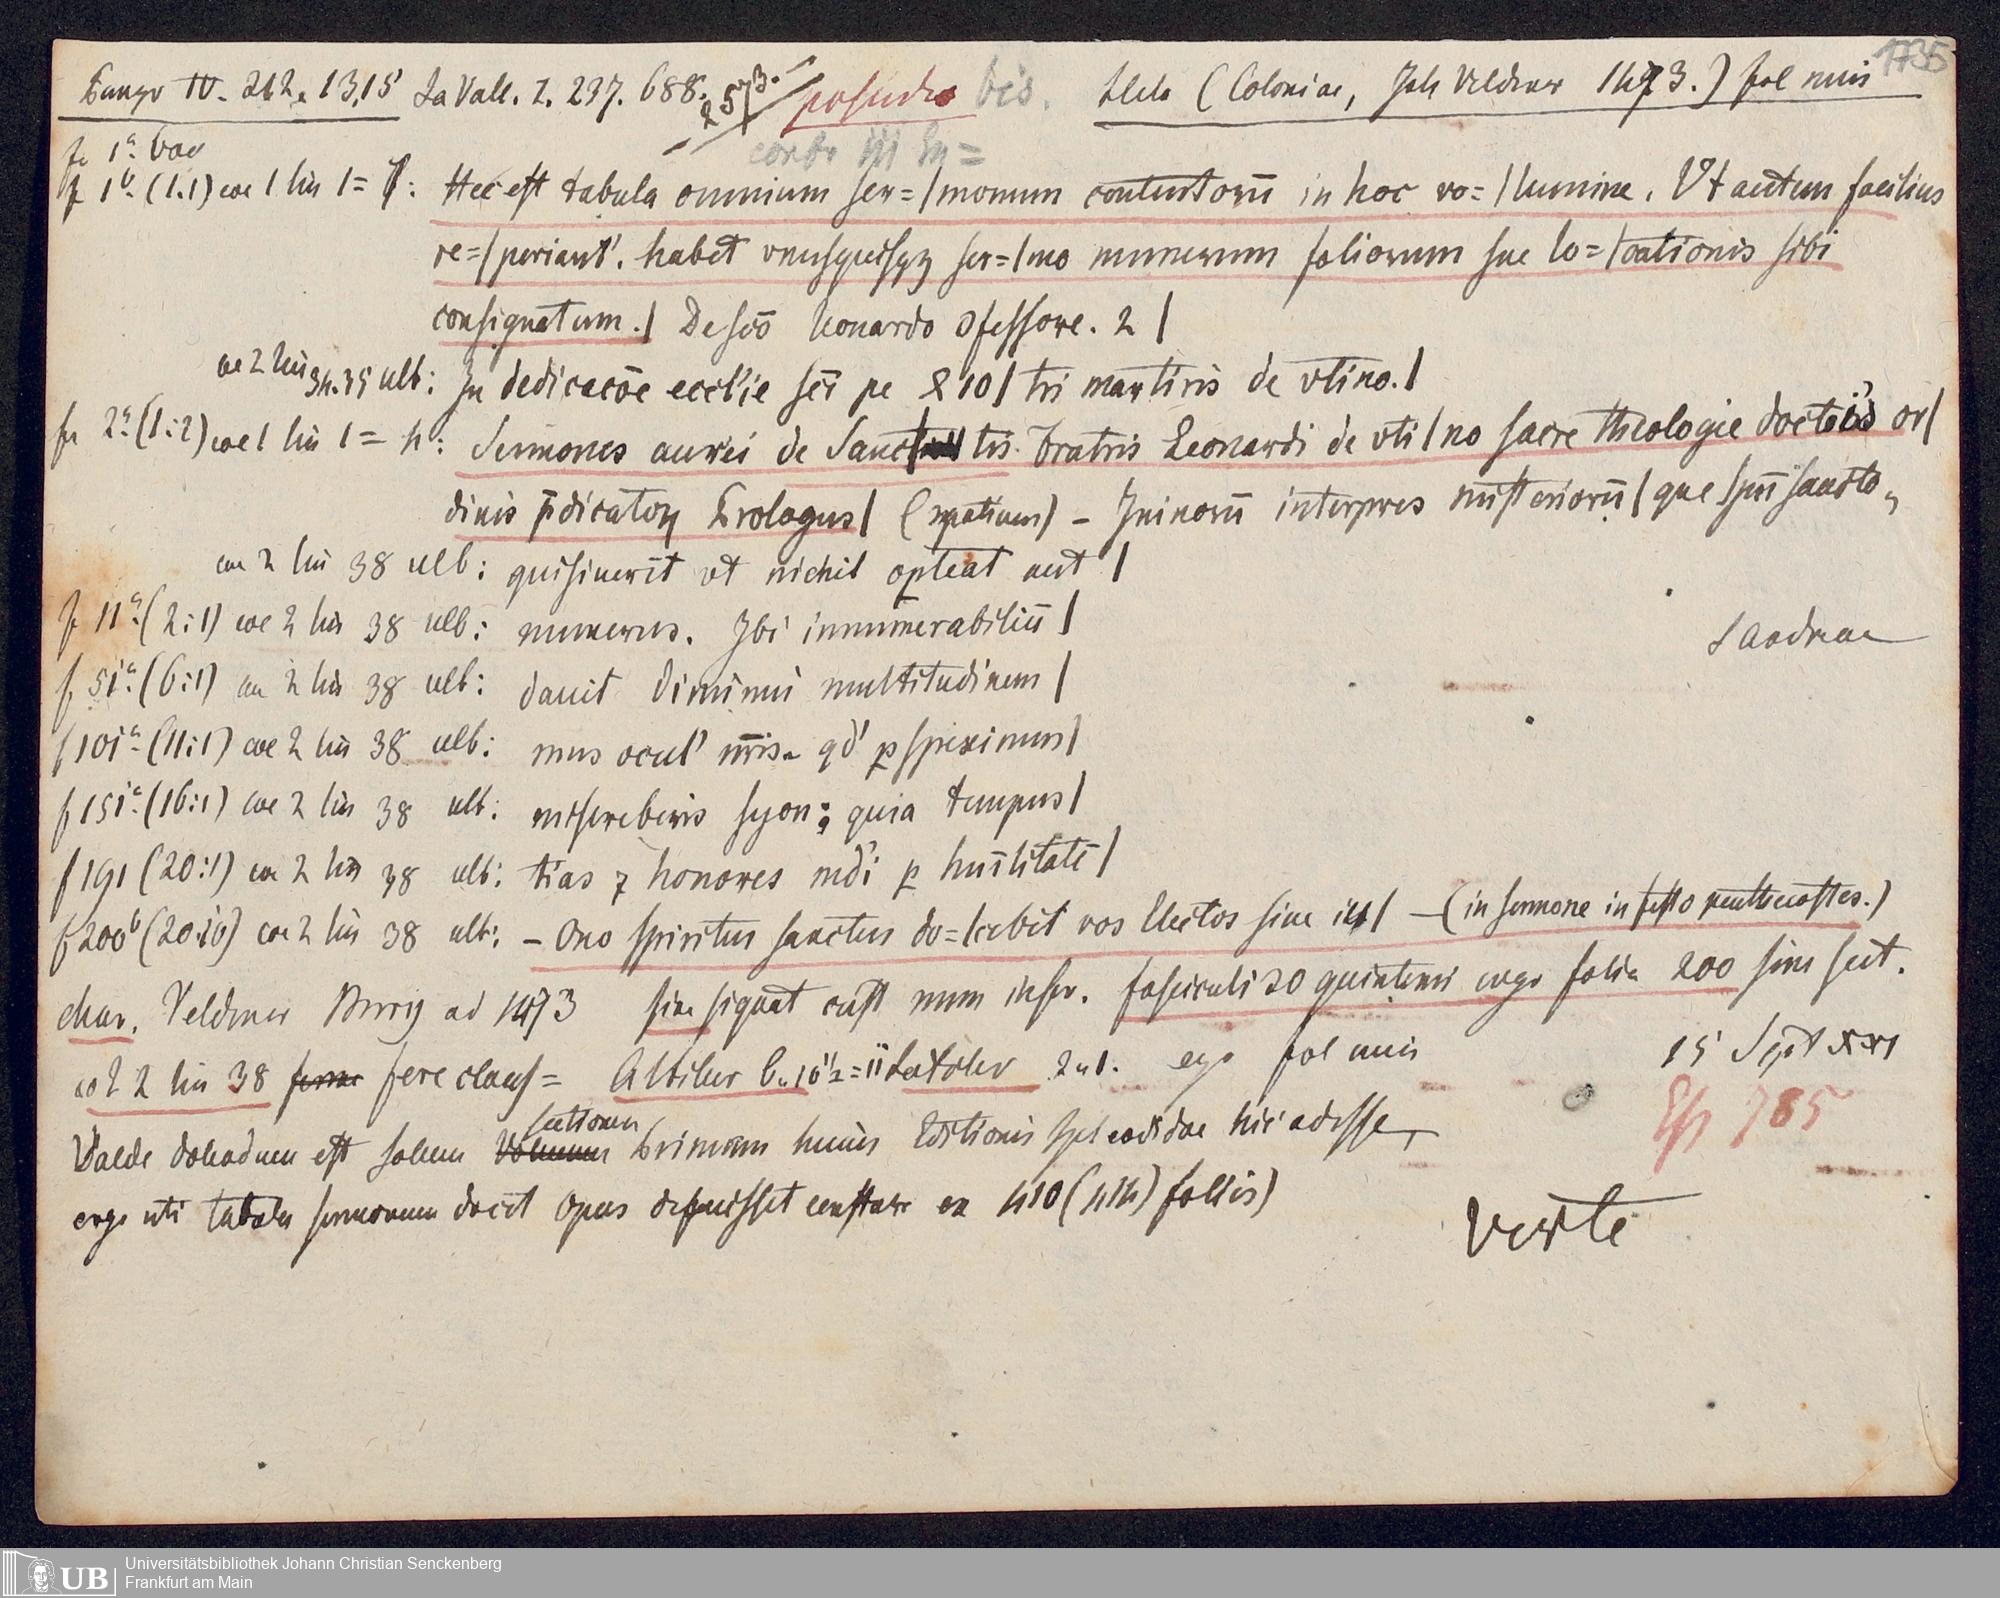 1735
Panzer IV. 212. 13,15 La Vall. I. 237. 688. 2573. bis. (Coloniae, Joh Veldener 1473.) fol min
f 1a: vac
f 1b (1.1) col 1 lin 1 = Hec est tabula omnium ser=/monum contentorū in hoc vo=/lumine. Vt autem facilius
re=/periant'. habet vnusquisqz ser=/mo numerum foliorum sue lo=/cationis sibi
consignatum./ De scō leonardo ɔfessore. 2 /
col 2 lin 34.35 ult: In dedicacōe eccl'ie sc̄i pe 210/ tri martiris de vtino./
f 2a (1:2) col 1 lin 1 = Sermones aurei de Sanc/tis fratris Leonardi de vti/no sacre theologie doctoris or/
dinis p̄dicatorꝝ Prologus/ (spatium) - interpres misteriorū/ que spūssancto
col 2 lin 38 ult: ut nichil opteat aut /
f 11a (2:1) col 2 lin 38 ult: numerus. Ibi innumerabiliū /
f 51a (6:1) col 2 lin 38 ult: dauit diminui multitudinem /
f 101a (11:1) col 2 lin 38 ult: mus ocul' nr̄is. qd' ꝑspeximus/
f 151a (16:1) col 2 lin 38 ult: misereberis syon: quia tempus/
f 191 (20:1) col 2 lin 38 ult: tias ⁊ honores mdi ꝑ huīlitatē/
f 200b (20:10) col 2 lin 38 ult: - spiritus sanctus do=/cebit vos electos sine / - (in sermone in festo penthecostes.)
char. Veldener ad 1473 sine signat cust num inser. fasciculi 20 quinterni ergo folia 200 sine sect.
col 2 lin 38 fere ergo fol min
15 Sept xxi
785
Valde dolendum est solum sectionem primam huius Editionis splendidae hic adesse,
ergo uti tabula sermonum docet opus constare ex 410 (414) foliis)
verte
UB
Universitätsbibliothek Johann Christian Senckenberg
Frankfurt am Main